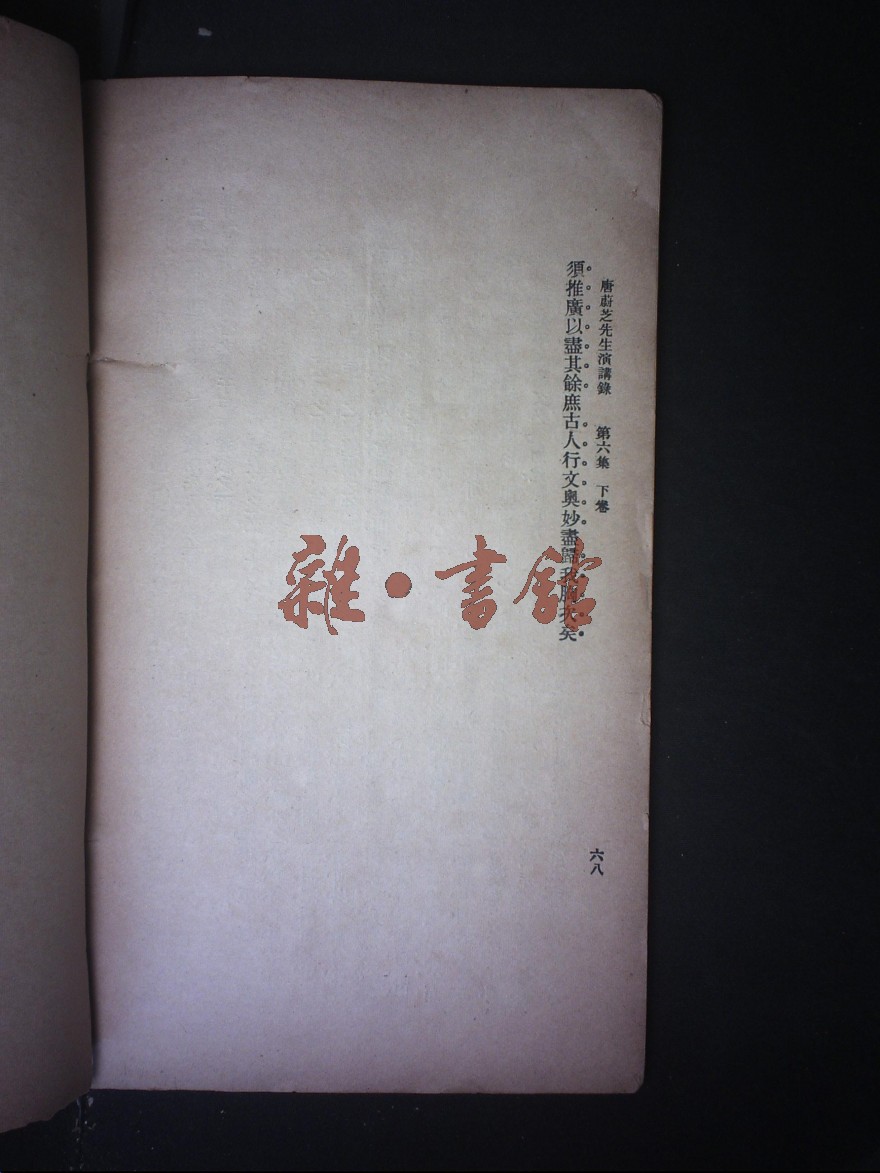 唐蔚芝先生演講錄 第六集 下卷
須推廣以盡其餘庶古人行文奧妙盡歸我胸次矣
六八
雜·書館